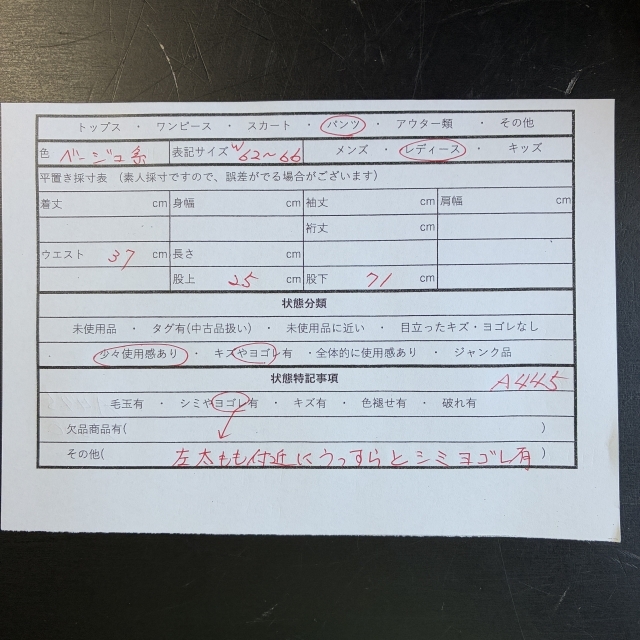 トップス ・ ワンピース ・ スカート ・ パンツ ・ アウター類 ・ その他
色 ベージュ系 表記サイズ W62〜66 メンズ ・ レディース ・ キッズ
平置き採寸表 (素人採寸ですので、誤差がでる場合がございます)
着丈 cm 身幅 cm 袖丈 cm 肩幅 cm
裄丈 cm
ウエスト 37 cm 長さ
股上 25 cm 股下 71 cm
状態分類
未使用品 ・ タグ有(中古品扱い) ・ 未使用品に近い ・ 目立ったキズ・ヨゴレなし
・ 少々使用感あり ・ キズやヨゴレ有 ・全体的に使用感あり ・ ジャンク品
状態特記事項 A445
毛玉有 ・ シミやヨゴレ有 ・ キズ有 ・ 色褪せ有 ・ 破れ有
欠品商品有( )
その他( 左太もも付近にうっすらとシミヨゴレ有 )